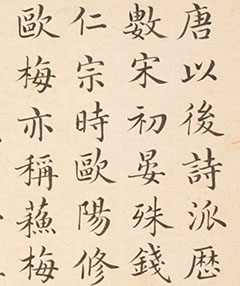 唐以後詩派歷
數宋初晏殊錢
仁宗時歐陽修
歐梅亦稱蘓梅